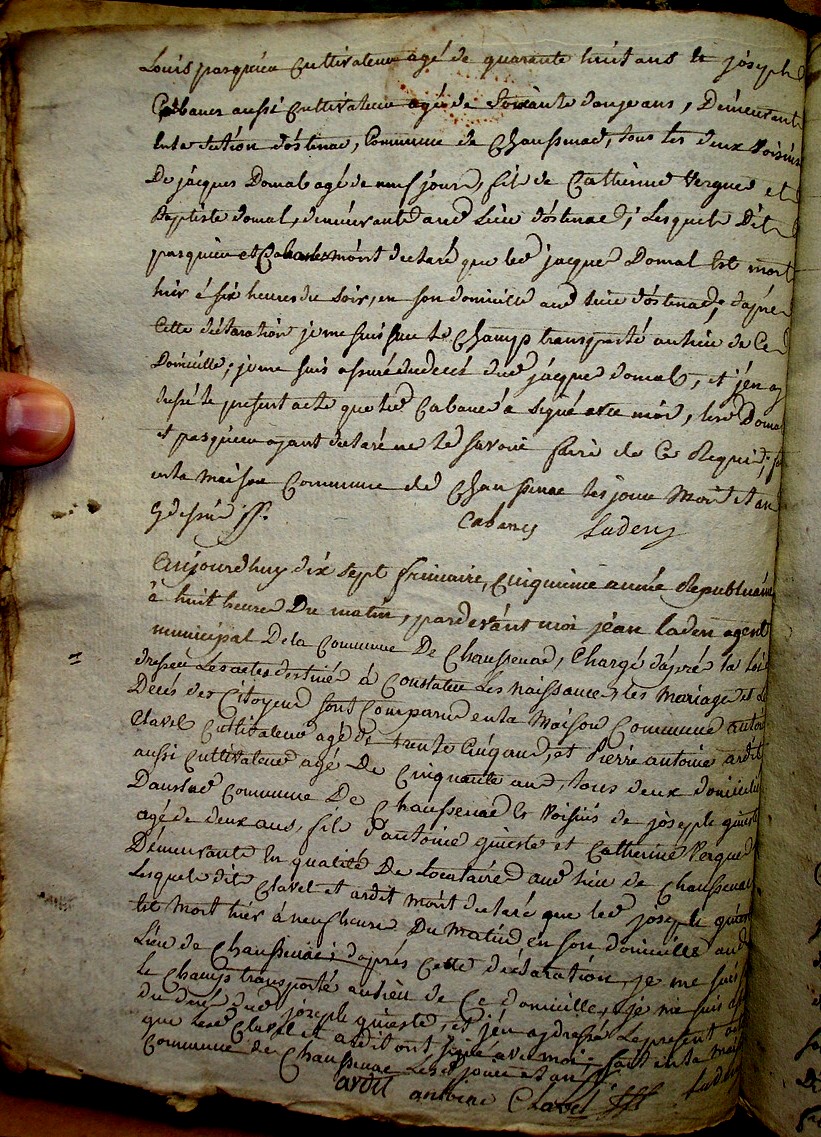 Louis pasquieu Cultivateur agé de quarante huit ans et joseph
Cabanes aussi Cultivateur agé de soixante douze ans, Demeurant
en la section d'ostenac, Commune de Chaussenac, tous les deux voisins
De jacques Domal agé de neuf jours, fils de Catherine Vergne et
Baptiste domal, demeurant aud lieu d'ostenac; Lesquels Dit
pasquieu et Cabanes m'ont declaré que led jacques Domal est mort
hier à six heures du soir, en son domicille aud lieu d'ostenac; d'apres
Cette déclaration je me suis sur le Champs transporté au lieu de Ce
Domicille, je me suis assuré du decés dud jacques domal, et j'en ay
dressé le present acte que led Cabanes a signé avec moi, led Domal
et pasquieu ayant declaré ne le savoir faire de Ce Requis; fait
en la maison Commune de Chaussenac les jour Mois et an
Cabanes Laden
aujourdhuy dix sept frimaire, Cinquieme année Republicaine
à huit heures Du matin, pardevant moi jean laden agent
municipal De la Commune De Chaussenac, Chargé d'aprés la Loi
dresser Les actes destinés à Constater Les Naissances, les Mariages et Le
Décés des Citoyens sont Comparus en la Maison Commune antoine
Clavel Cultivateur agé de trente Cinq ans, et Pierre antoine ardit
aussi Cultivateur agé De Cinquante ans, tous deux domicilies
Dans lad Commune De Chaussenac et Voisins de joseph
agé de deux ans, fils d'antoine et Catherine Vergne
Demeurants En qualité De Locataires aud lieu de Chaussenac
Lesquels dits Clavel et ardit m'ont declaré que led joseph
Est Mort hier à neuf heures Du Matin en son domicille aud
Lieu de Chaussenac; d'aprés Cette déclaration, je me suis
le Champs transporté au lieu de Ce domicille, je me suis
du decés dud joseph et j'en ay dressé Le present acte
que Lesd Clavel et ardit ont signé avec moi; fait en la Maison
Commune de Chaussenac Les d jour et an
ardit antoine Clavel Laden